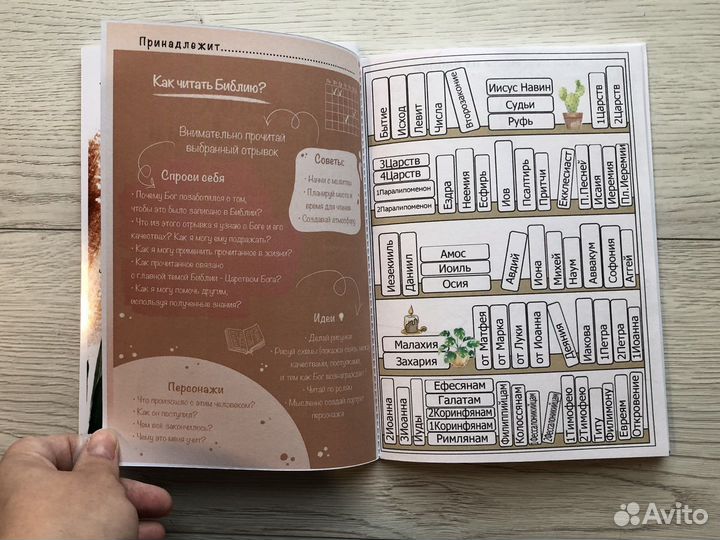 Принадлежит
Как читать Библию?
Внимательно прочитай
выбранный отрывок
Спроси себя
• Почему Бог позаботился о том,
чтобы это было записано в Библии?
• Что из этого отрывка я узнаю о Боге и его
качествах? Как я могу ему подражать?
• Как я могу применить прочитанное в жизни?
• Как прочитанное связано
с главной темой Библии - Царством Бога?
• Как я могу помочь другим,
используя полученные знания?
Советы:
• Начни с молитвы
• Планируй место и
время для чтения
• Создавай атмосферу
Идеи
• Делай рисунки
• Рисуй схемы
качествами, поступками,
и тем как Бог вознаграждает
• Читай по ролям
• Мысленно создай портрет
персонажа
Персонажи
• Что произошло с этим человеком?
• Как он поступил?
• Чем всё закончилось?
• Чему это меня учит?
Бытие
Исход
Левит
Числа
Второзаконие
Иисус Навин
Судьи
Руфь
1Царств
2Царств
3Царств
4Царств
1Паралипоменон
2Паралипоменон
Ездра
Неемия
Есфирь
Иов
Псалтирь
Притчи
Екклесиаст
П.Песней
Исаия
Иеремия
Пл.Иеремии
Иезекииль
Даниил
Амос
Иоиль
Осия
Авдий
Иона
Михей
Наум
Аввакум
Софония
Аггей
Малахия
Захария
от Матфея
от Марка
от Луки
от Иоанна
Деяния
Иакова
1Петра
2Петра
1Иоанна
2Иоанна
3Иоанна
Иуды
Ефесянам
Галатам
2Коринфянам
1Коринфянам
Римлянам
Филиппийцам
Колоссянам
1Фессалоникийцам
2Фессалоникийцам
1Тимофею
2Тимофею
Титу
Филимону
Евреям
Откровение
Avito